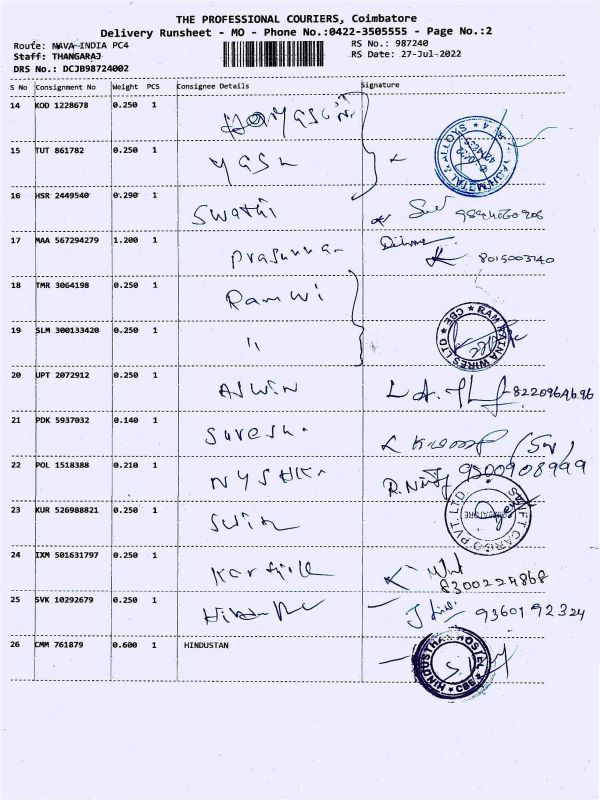 THE PROFESSIONAL COURIERS, Coimbatore
Delivery Runsheet - MO - Phone No.:0422-3505555 - Page No.:2
Route: NAVA-INDIA PC4 RS No.: 987240
Staff: THANGARAJ RS Date: 27-Jul-2022
DRS No.: DCJB98724002
S No Consignment No Weight PCS Consignee Details Signature
14 KOD 1228678 0.250 1
15 TUT 861782 0.250 1 YASH
16 HSR 2449540 0.290 1 Swathi
17 MAA 567294279 1.200 1 Prasanna 8015003140
18 TMR 3064198 0.250 1 Ramwi
RAM RATNA WIRES LTD CBE
19 SLM 300133420 0.250 1 "
20 UPT 2072912 0.250 1 ASWIN 8220964696
21 PDK 5937032 0.140 1 Suresh
22 POL 1518388 0.210 1 9500908999
SWIFT CARGO PVT LTD
23 KUR 526988821 0.250 1
24 IXM 501631797 0.250 1 Karthik
25 SVK 10292679 0.250 1 9360192324
26 CMM 761879 0.600 1 HINDUSTAN
HINDUSTHAN HOSTEL CBE